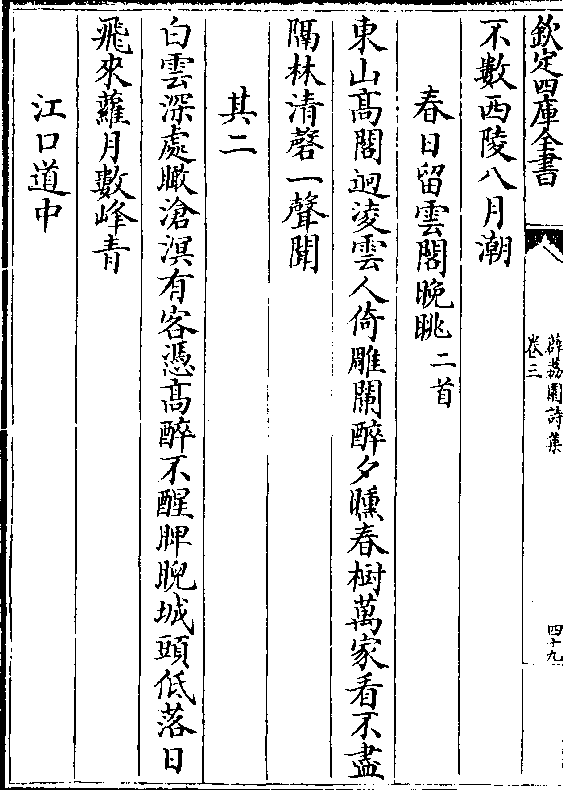 欽定四庫全書
薜荔園詩集
卷三
四十九
不數西陵八月潮
春日留雲閣晚眺二首
東山髙閣迥淩雲人倚雕闌醉夕曛春樹萬家看不盡
隔林清磬一聲聞
其二
白雲深處瞰滄溟有客憑髙醉不醒睥睨城頭低落日
飛來蘿月數峰青
江口道中